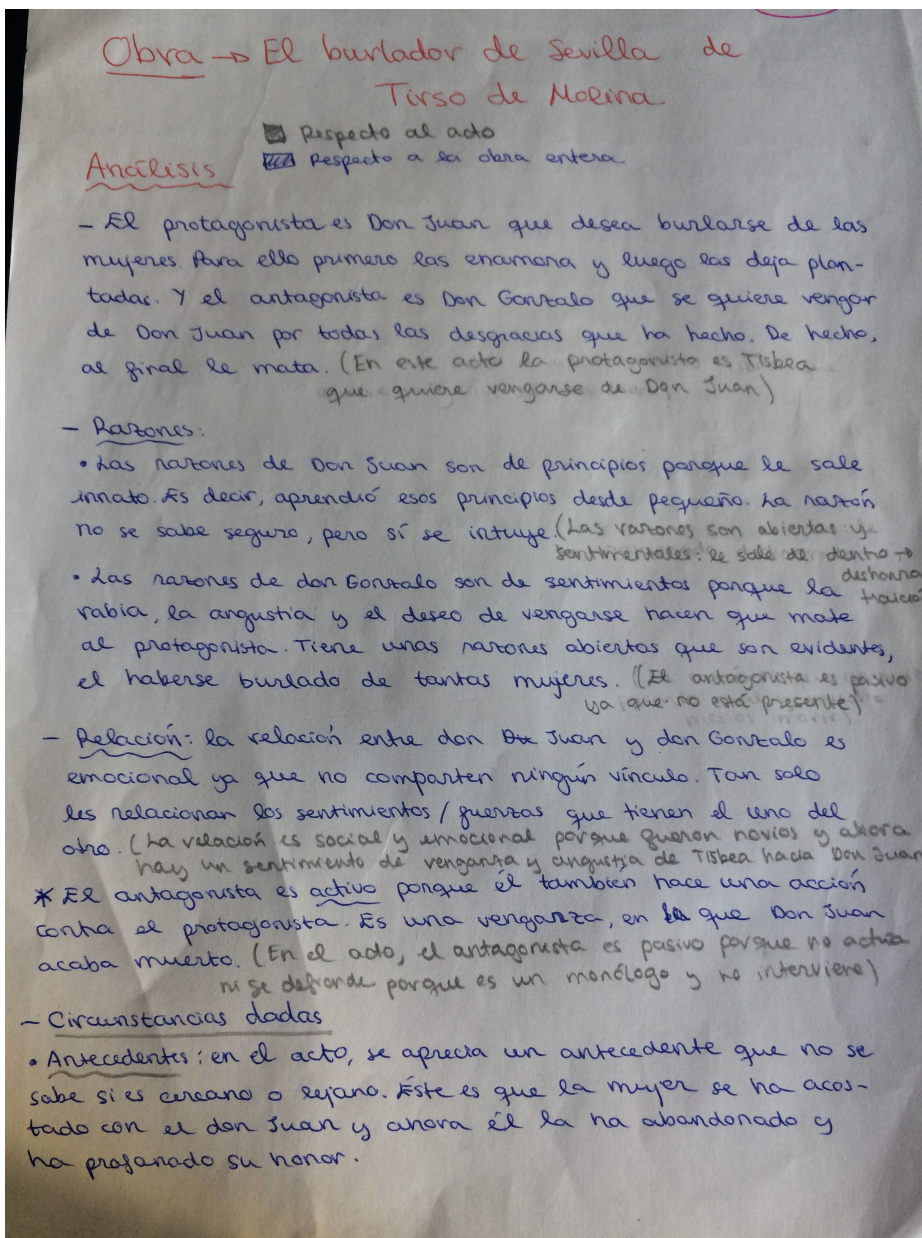 Obra → El burlador de Sevilla de
Tirso de Molina
Respecto al acto
Respecto a la obra entera
Análisis
- El protagonista es Don Juan que desea burlarse de las
mujeres. Para ello primero las enamora y luego las deja plan-
tadas. Y el antagonista es Don Gonzalo que se quiere vengar
de Don Juan por todas las desgracias que ha hecho. De hecho,
al final le mata. (En este acto la protagonista es Tisbea
que quiere vengarse de Don Juan)
- Razones:
• Las razones de Don Juan son de principios porque le sale
innato. Es decir, aprendió esos principios desde pequeño. La razón
no se sabe seguro, pero sí se intuye. (Las razones son abiertas y
sentimentales: le sale de dentro →
deshonra
traición
• Las razones de don Gonzalo son de sentimientos porque la
rabia, la angustia y el deseo de vengarse hacen que mate
al protagonista. Tiene unas razones abiertas que son evidentes,
el haberse burlado de tantas mujeres. (El antagonista es pasivo
ya que no está presente)
- Relación: la relación entre don Juan y don Gonzalo es
emocional ya que no comparten ningún vínculo. Tan solo
les relacionan los sentimientos / fuerzas que tienen el uno del
otro. (La relación es social y emocional porque fueron novios y ahora
hay un sentimiento de venganza y angustia de Tisbea hacia Don Juan
* El antagonista es activo porque él también hace una acción
contra el protagonista. Es una venganza, en la que Don Juan
acaba muerto. (En el acto, el antagonista es pasivo porque no actúa
ni se defiende porque es un monólogo y no interviene)
- Circunstancias dadas
• Antecedentes: en el acto, se aprecia un antecedente que no se
sabe si es cercano o lejano. Éste es que la mujer se ha acos-
tado con el don Juan y ahora él la ha abandonado y
ha profanado su honor.